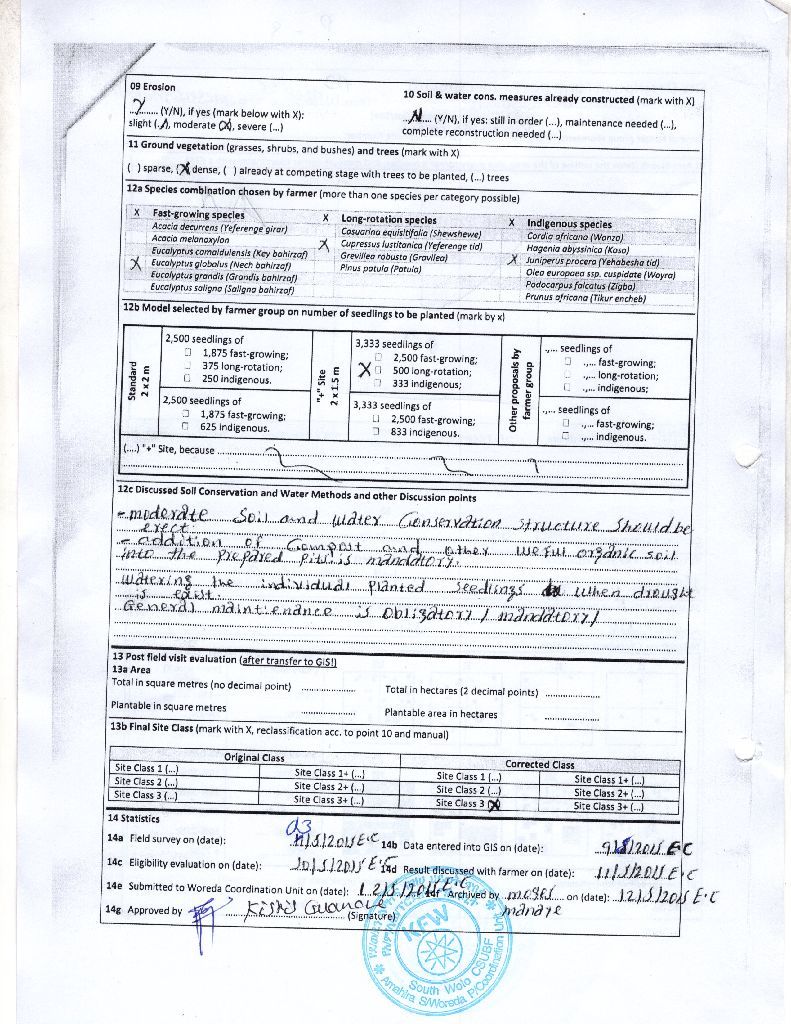 09 Erosion
Y (Y/N), if yes (mark below with X):
slight (...), moderate (X), severe (...)
10 Soil & water cons. measures already constructed (mark with X)
N (Y/N), if yes: still in order (...), maintenance needed (...),
complete reconstruction needed (...)
11 Ground vegetation (grasses, shrubs, and bushes) and trees (mark with X)
( ) sparse, (X) dense, ( ) already at competing stage with trees to be planted, (...) trees
12a Species combination chosen by farmer (more than one species per category possible)
X Fast-growing species
Acacia decurrens (Yeferenge girar)
Acacia melanoxylon
Eucalyptus camaldulensis (Key bahirzaf)
X Eucalyptus globulus (Nech bahirzaf)
Eucalyptus grandis (Grandis bahirzaf)
Eucalyptus saligna (Saligna bahirzaf)
X Long-rotation species
Casuarina equisitifolia (Shewshewe)
X Cupressus lustitanica (Yeferenge tid)
Grevillea robusta (Gravilea)
Pinus patula (Patula)
X Indigenous species
Cordia africana (Wanza)
Hagenia abyssinica (Koso)
X Juniperus procera (Yehabesha tid)
Olea europaea ssp. cuspidate (Woyra)
Podocarpus falcatus (Zigba)
Prunus africana (Tikur encheb)
12b Model selected by farmer group on number of seedlings to be planted (mark by x)
Standard
2 x 2 m
2,500 seedlings of
□ 1,875 fast-growing;
□ 375 long-rotation;
□ 250 indigenous.
2,500 seedlings of
□ 1,875 fast-growing;
□ 625 indigenous.
"+" Site
2 x 1.5 m
3,333 seedlings of
□ 2,500 fast-growing;
X □ 500 long-rotation;
□ 333 indigenous;
3,333 seedlings of
□ 2,500 fast-growing;
□ 833 indigenous.
Other proposals by
farmer group
.,... seedlings of
□ .,... fast-growing;
□ .,... long-rotation;
□ .,... indigenous;
.,... seedlings of
□ .,... fast-growing;
□ .,... indigenous.
(....) "+" Site, because
12c Discussed Soil Conservation and Water Methods and other Discussion points
- moderate Soil and water Conservation structure should be
erect.
- addition of Compost and other useful organic soil
into the prepared pits is mandatory.
watering the individual planted seedlings when drought
is exist.
General maintienance is obligatory / mandatory/
13 Post field visit evaluation (after transfer to GIS!)
13a Area
Total in square metres (no decimal point) ..................
Total in hectares (2 decimal points) ..................
Plantable in square metres ..................
Plantable area in hectares ..................
13b Final Site Class (mark with X, reclassification acc. to point 10 and manual)
Original Class
Corrected Class
Site Class 1 (...) Site Class 1+ (...) Site Class 1 (...) Site Class 1+ (...)
Site Class 2 (...) Site Class 2+ (...) Site Class 2 (...) Site Class 2+ (...)
Site Class 3 (...) Site Class 3+ (...) Site Class 3 (X) Site Class 3+ (...)
14 Statistics
03
14a Field survey on (date): /5/2015 E.C
14b Data entered into GIS on (date): 9/5/2015 E.C
14c Eligibility evaluation on (date): 10/5/2015 E.C
14d Result discussed with farmer on (date): 11/5/2015 E.C
14e Submitted to Woreda Coordination Unit on (date): 12/5/2015 E.C
14f Archived by moges manaye on (date): 12/5/2015 E.C
14g Approved by
(Signature)
KFW
South Wolo CSUBF
Amahra S/Woreda P/Coordination Unit